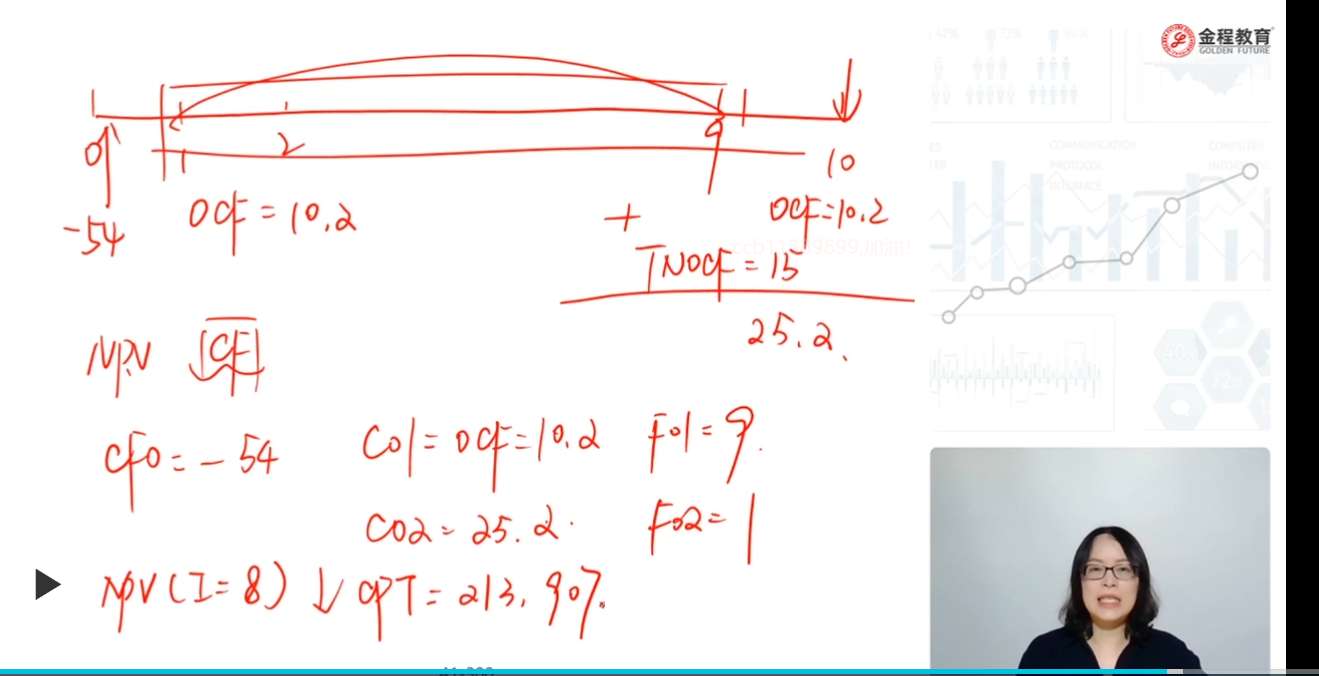 金程教育
GOLDEN FUTURE
0 1 2 9 10
-54 OCF=10.2 + OCF=10.2
TNOCF=15
25.2.
NPV CF
CF0=-54 C01=OCF=10.2 F01=9.
C02=25.2. F02=1
NPV(I=8)↓CPT=213.907.